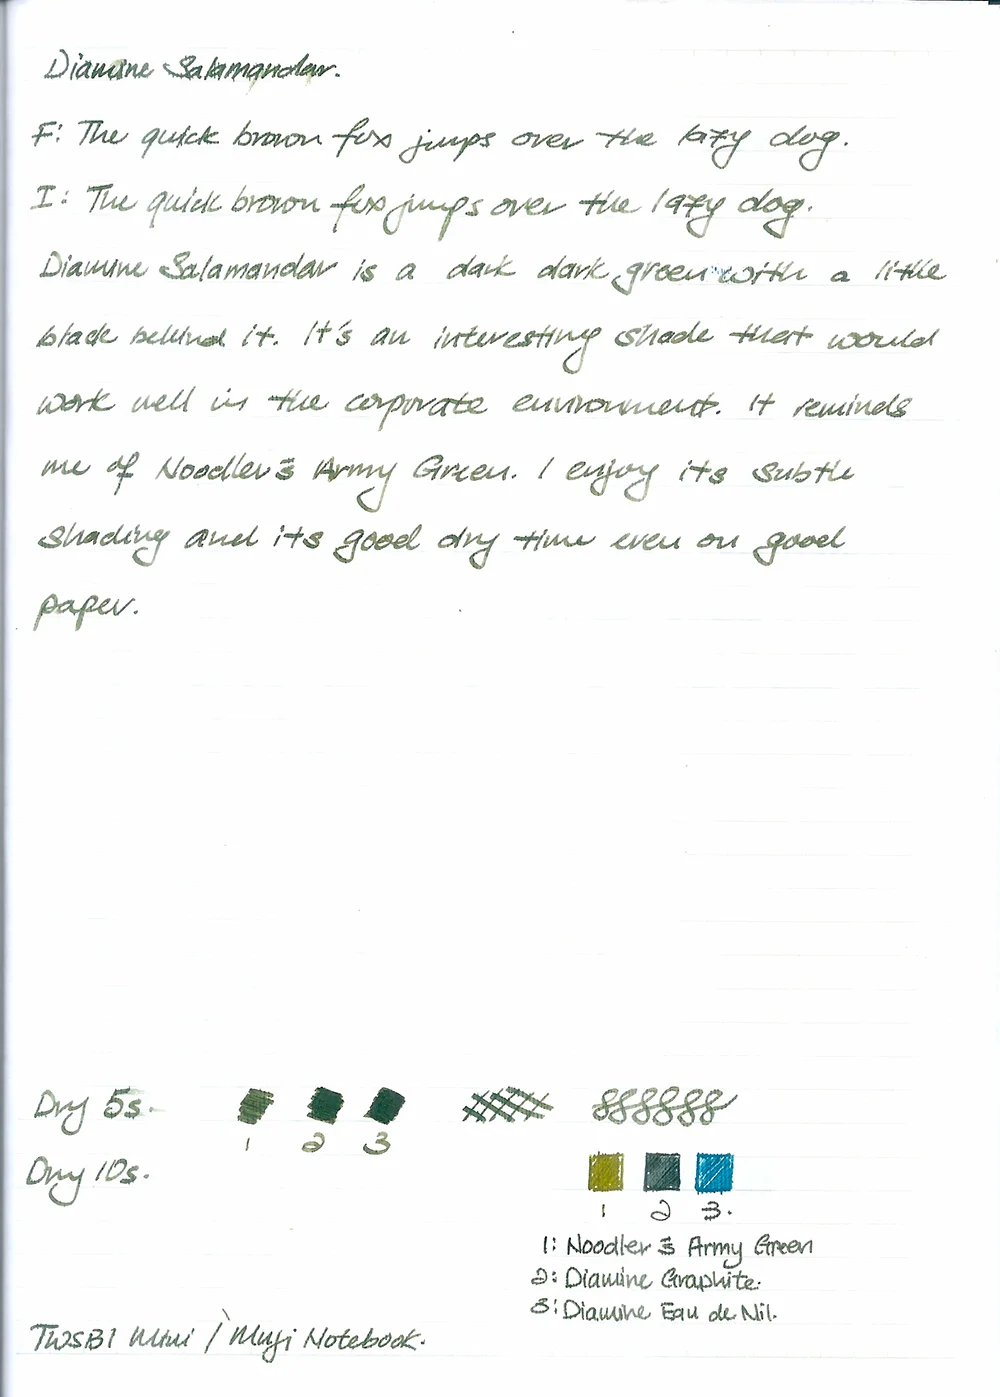 Diamine Salamandar.
F: The quick brown fox jumps over the lazy dog.
I: The quick brown fox jumps over the lazy dog.
Diamine Salamandar is a dark dark green with a little
black behind it. It's an interesting shade that would
work well in the corporate environment. It reminds
me of Noodler's Army Green. I enjoy its subtle
shading and its good dry time even on good
paper.
Dry 5s.
1 2 3
Dry 10s.
1 2 3.
1: Noodler's Army Green
2: Diamine Graphite.
3: Diamine Eau de Nil.
TWSBI Mini / Muji Notebook.